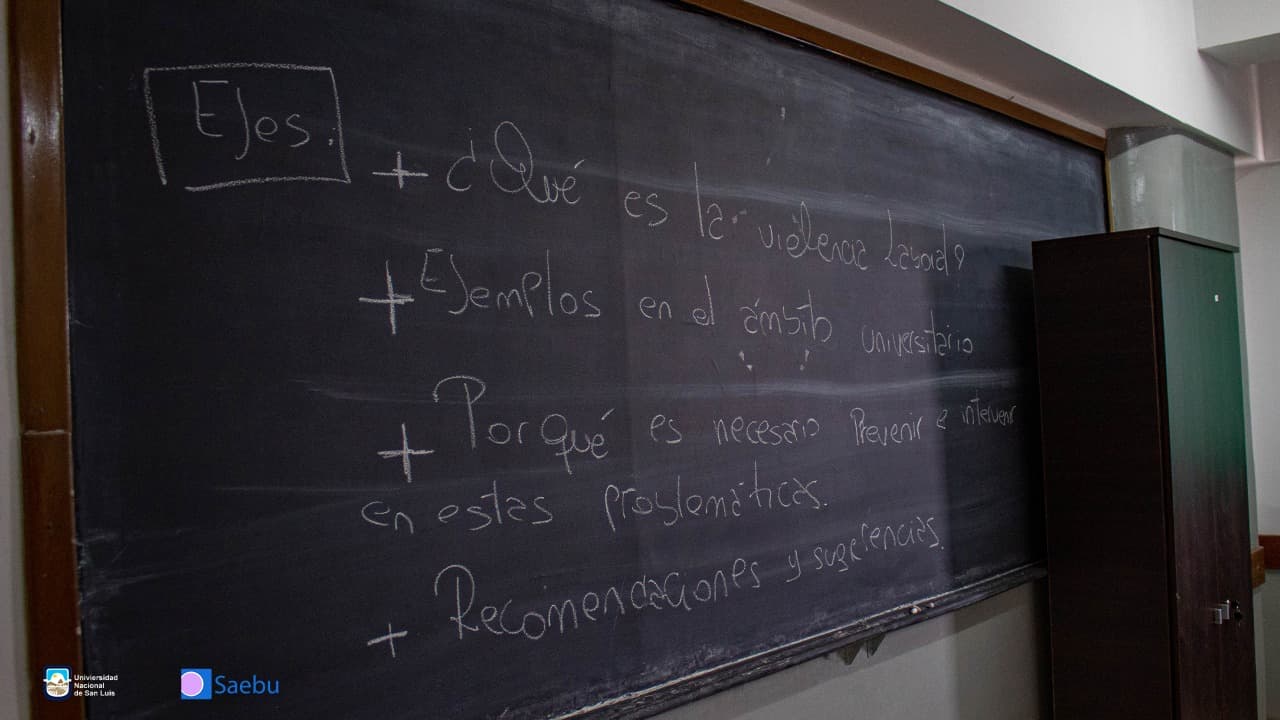 Ejes:
+ ¿Qué es la violencia laboral?
+ Ejemplos en el ámbito universitario
+ Por qué es necesario Prevenir e intervenir
en estas problemáticas.
+ Recomendaciones y sugerencias.
Universidad
Nacional
de San Luis
Saebu